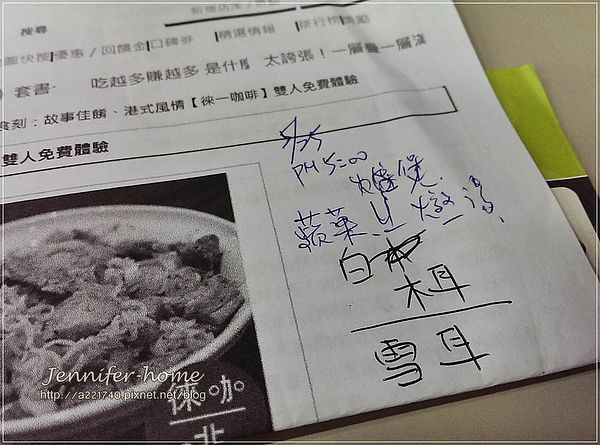 搜尋
優惠 / 回饋金
口碑券
精選情報
排行榜
套書
吃越多賺越多 是什麼 太誇張！一層疊一層
食刻：故事佳餚、港式風情【徠一咖啡】雙人免費體驗
雙人免費體驗
PM 5:00
煲
蘋菓 燉湯
白木
木耳
雪耳
徠咖
一啡
Jennifer-home
http://a221740.pixnet.net/blog